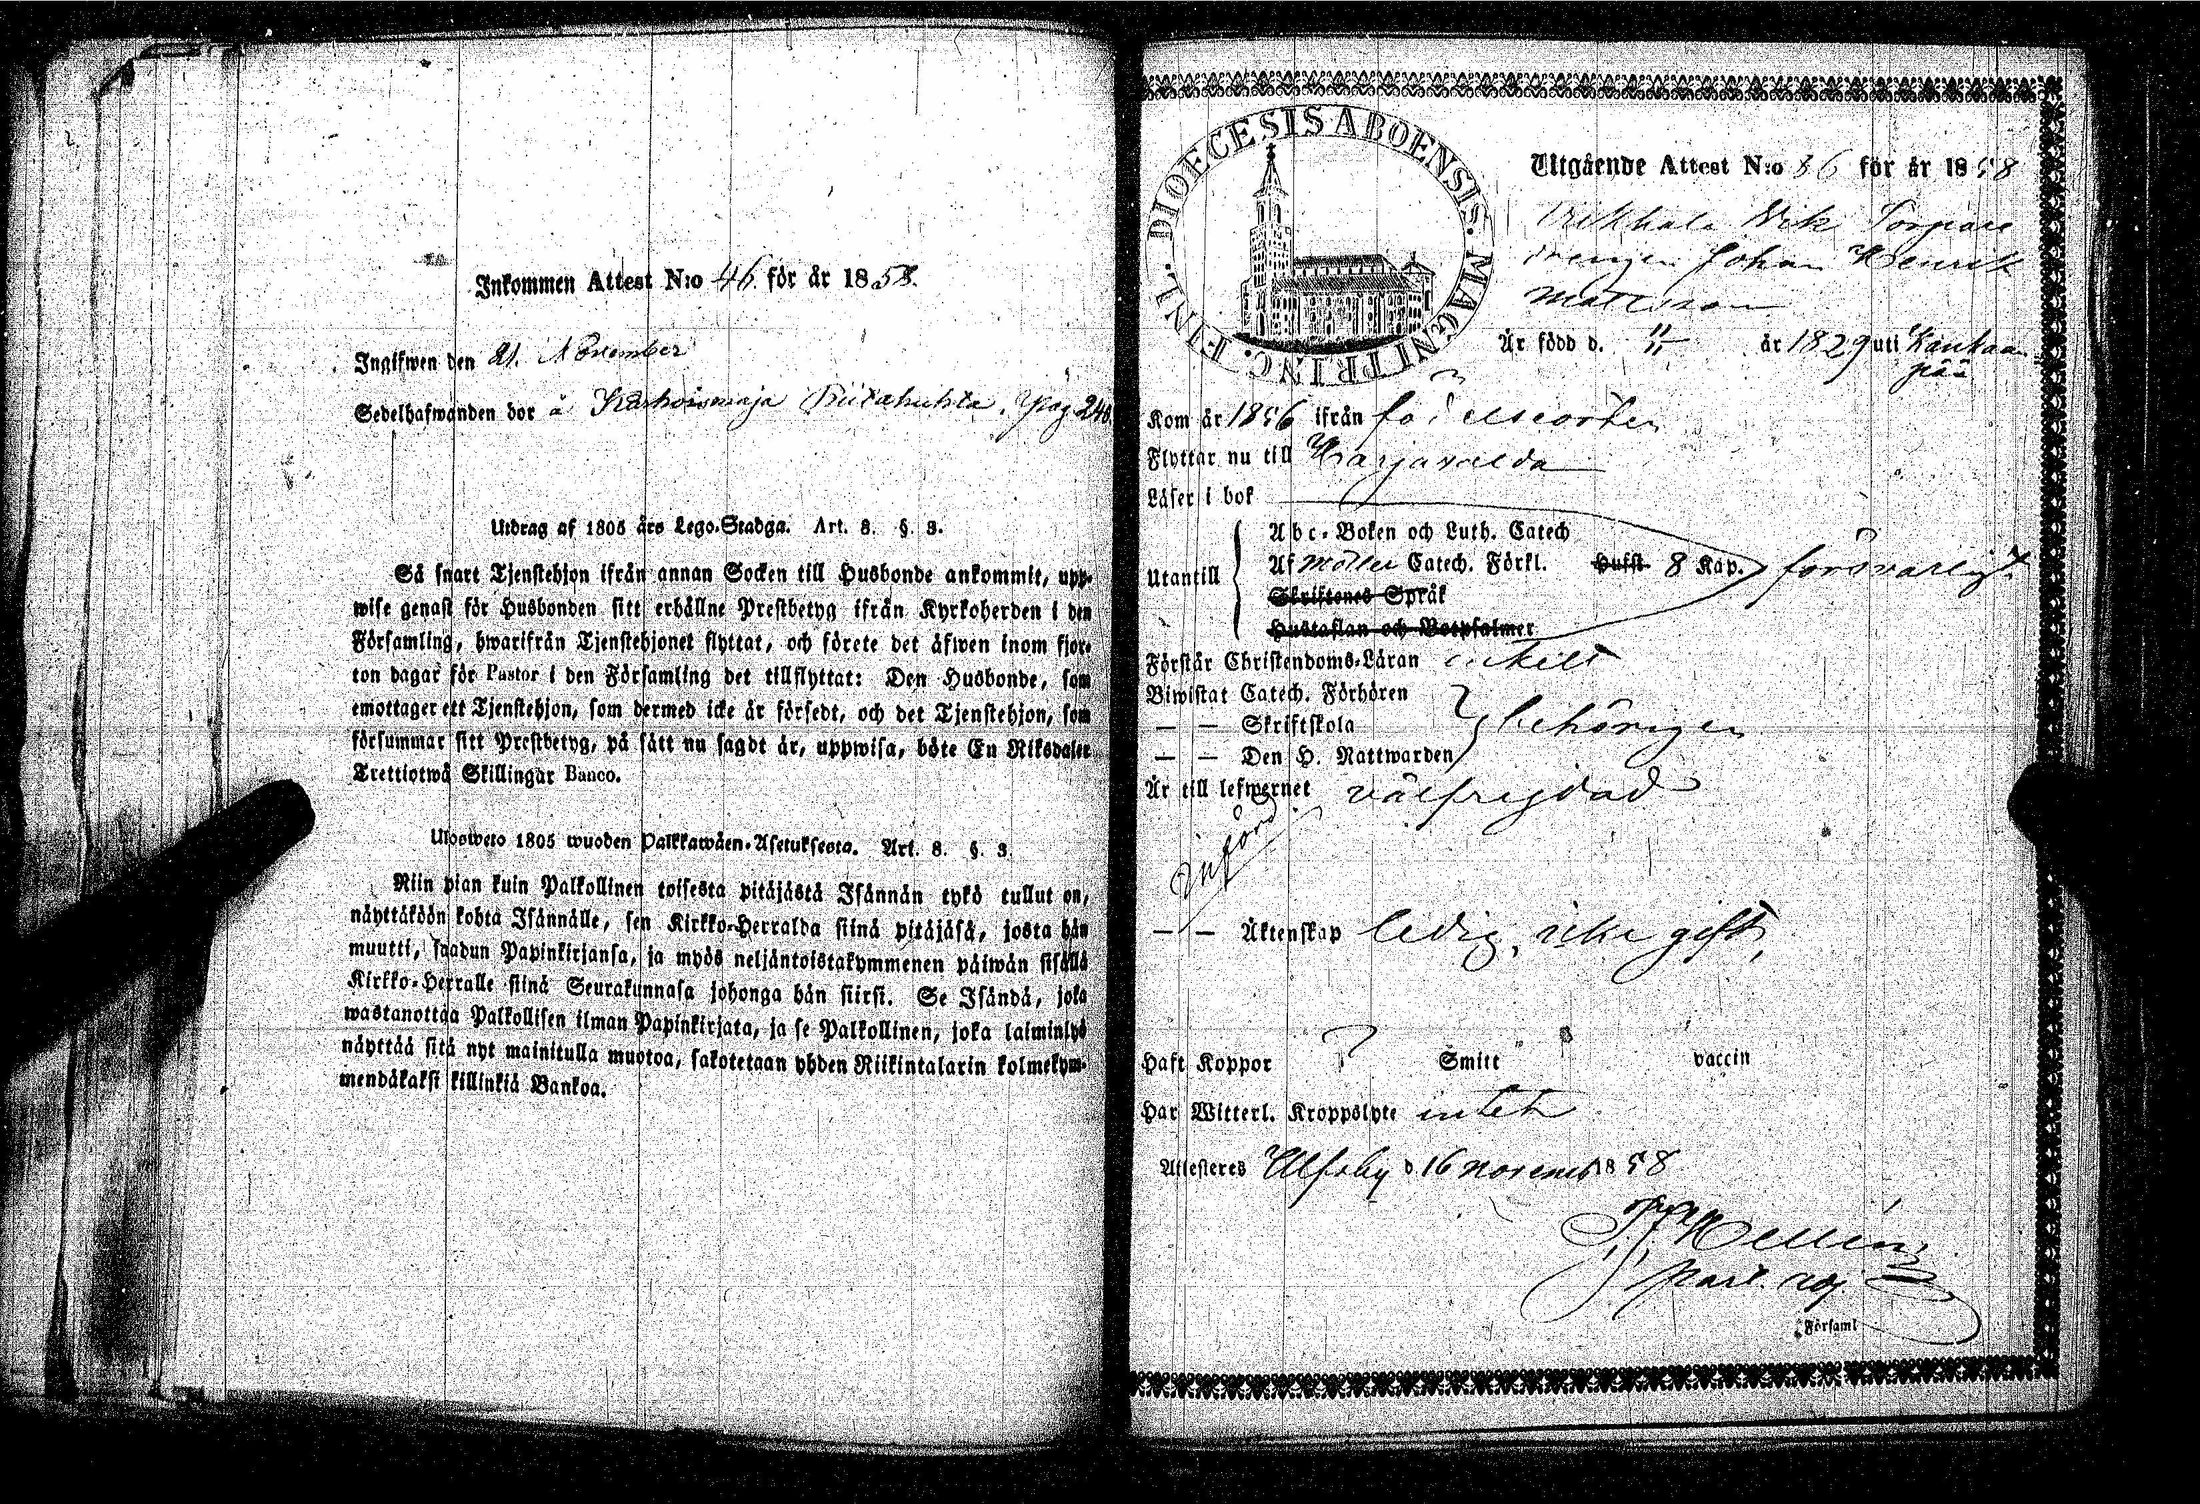 Inkommen Attest N:o 46 för år 1858.
Ingifwen den 21. November
Sedelhafwanden bor å Karhoismaja Riitahuhta. Pag 248.
Utdrag af 1805 års Lego-Stadga. Art. 8. §. 3.
Så snart Tjenstehjon ifrån annan Socken till Husbonde ankommit, upp-
wise genast för Husbonden sitt erhållne Prestbetyg ifrån Kyrkoherden i den
Församling, hwarifrån Tjenstehjonet flyttat, och förete det äfwen inom fjor-
ton dagar för Pastor i den Församling det tillflyttat: Den Husbonde, som
emottager ett Tjenstehjon, som dermed icke är försedt, och det Tjenstehjon, som
försummar sitt Prestbetyg, på sätt nu sagdt är, uppwisa, böte En Riksdaler
Trettiotwå Skillingar Banco.
Ulosweto 1805 wuoden Palkkawäen-Asetuksesta. Art. 8. §. 3.
Niin pian kuin Palkollinen toisesta pitäjästä Isännän tykö tullut on,
näyttäköön kohta Isännälle, sen Kirkko-Herralda siinä pitäjäsä, josta hän
muutti, saadun Papinkirjansa, ja myös neljäntoistakymmenen päiwän sisällä
Kirkko-Herralle siinä Seurakunnasa johonga hän siirsi. Se Isändä, joka
wastanottaa Palkollisen ilman Papinkirjata, ja se Palkollinen, joka laiminlyö
näyttää sitä nyt mainitulla muotoa, sakotetaan yhden Riikintalarin kolmekym-
mendäkaksi killinkiä Bankoa.
DIOECESIS ABOENSIS. MAGNI PRINC. FINL.
Utgående Attest N:o 86 för år 1858
Torpare
drengen Johan Henrik
Mattsson
Är född d. 11/11 år 1829 uti Kankaan
pää
Kom år 1856 ifrån födelseorten
Flyttar nu till Harjavalda
Läser i bok
Utantill
Abc-Boken och Luth. Catech
Af Möller Catech. Förkl. Hufst. 8 Kap. försvarligt
Skriftenes Språk
Hustaflan och Botpsalmer
Förstår Christendoms-Läran enkelt
Biwistat Catech. Förhören
— — Skriftskola behörigen
— — Den H. Nattwarden
Är till lefwernet välfrejdad
Införd
— — Äktenskap ledig, icke gift,
Haft Koppor ? Smitt vaccin
Har Witterl. Kroppslyte intet
Attesteras Ulfsby d 16 novemb 1858
Hellén
past. adj.
Församl